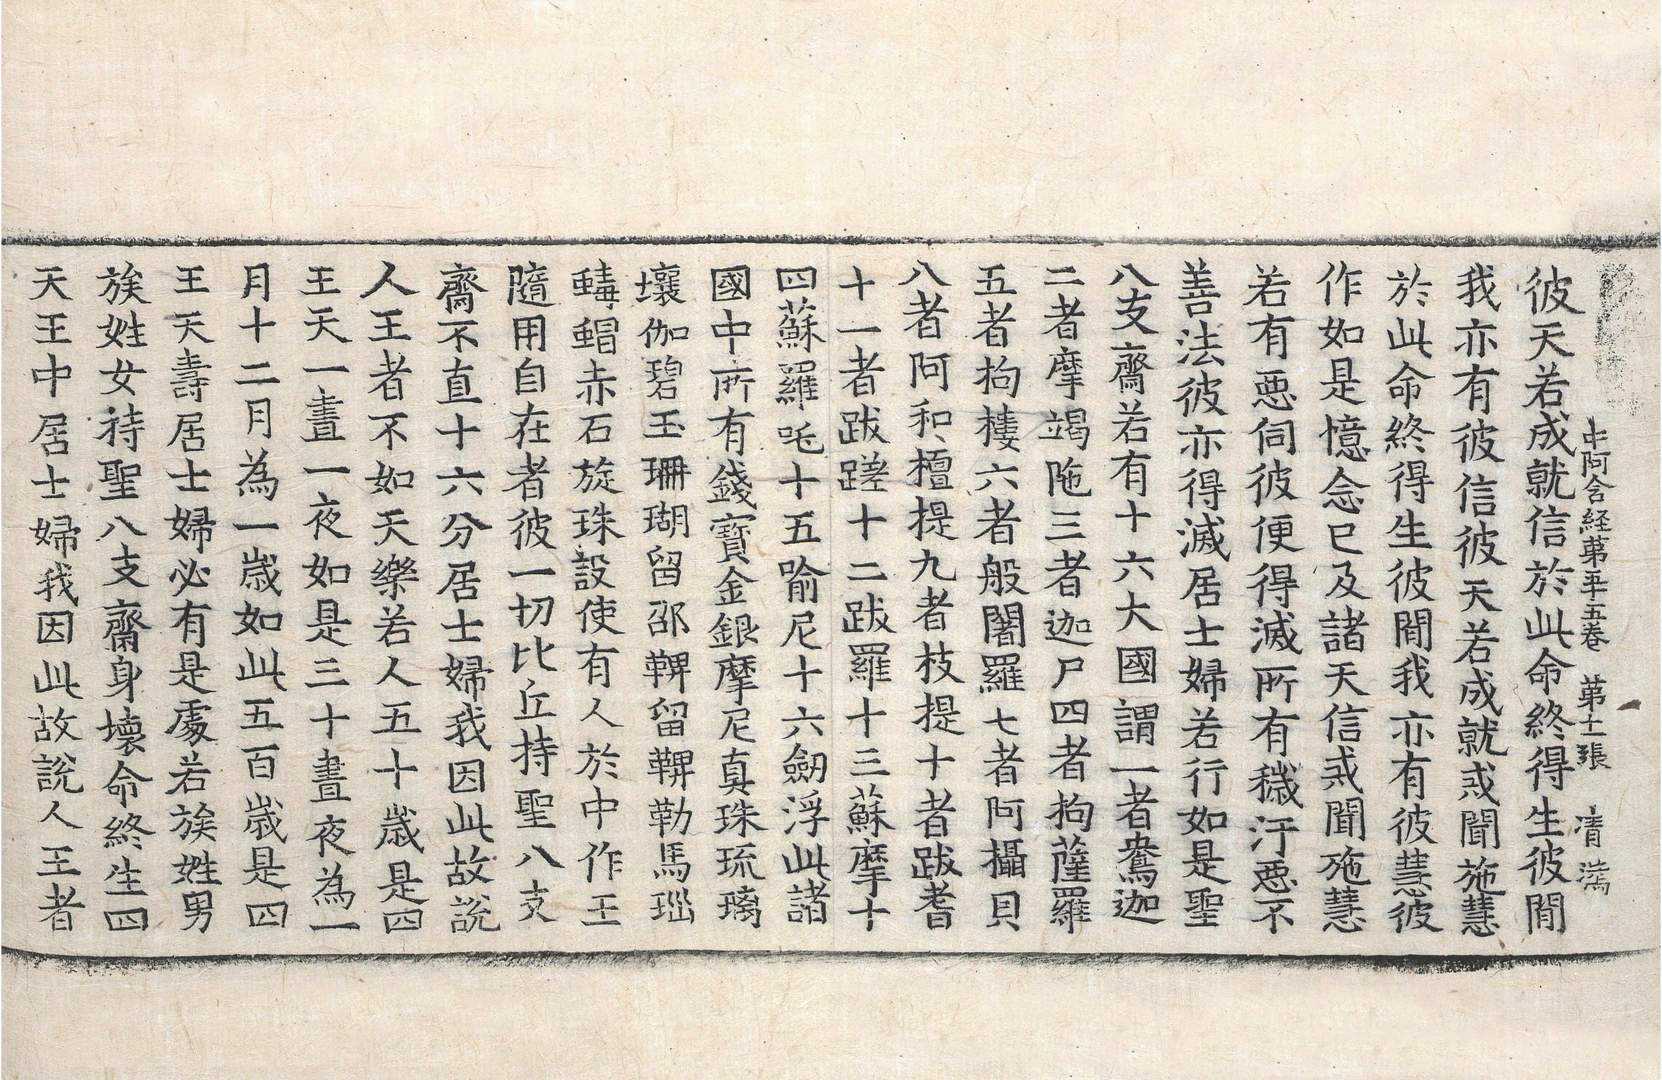 中阿含経第五十五巻 第十二張 清滿
彼天若成就信於此命終得生彼閒
我亦有彼信彼天若成就戒聞施慧
於此命終得生彼閒我亦有彼慧彼
作如是憶念已及諸天信戒聞施慧
若有悪伺彼便得滅所有穢汙悪不
善法彼亦得滅居士婦若行如是聖
八支齋若有十六大國謂一者鴦迦
二者摩竭陁三者迦尸四者拘薩羅
五者拘樓六者般闍羅七者阿攝貝
八者阿和檀提九者枝提十者跋耆
十一者跋蹉十二跋羅十三蘇摩十
四蘇羅吒十五喻尼十六劒浮此諸
國中所有錢寶金銀摩尼真珠琉璃
壤伽碧玉珊瑚留邵鞞留鞞勒馬瑙
䗍䖣赤石旋珠設使有人於中作王
隨用自在者彼一切比丘持聖八支
齋不直十六分居士婦我因此故說
人王者不如天樂若人五十歲是四
王天一晝一夜如是三十晝夜為一
月十二月為一歲如此五百歲是四
王天壽居士婦必有是處若族姓男
族姓女持聖八支齋身壞命終生四
天王中居士婦我因此故說人王者